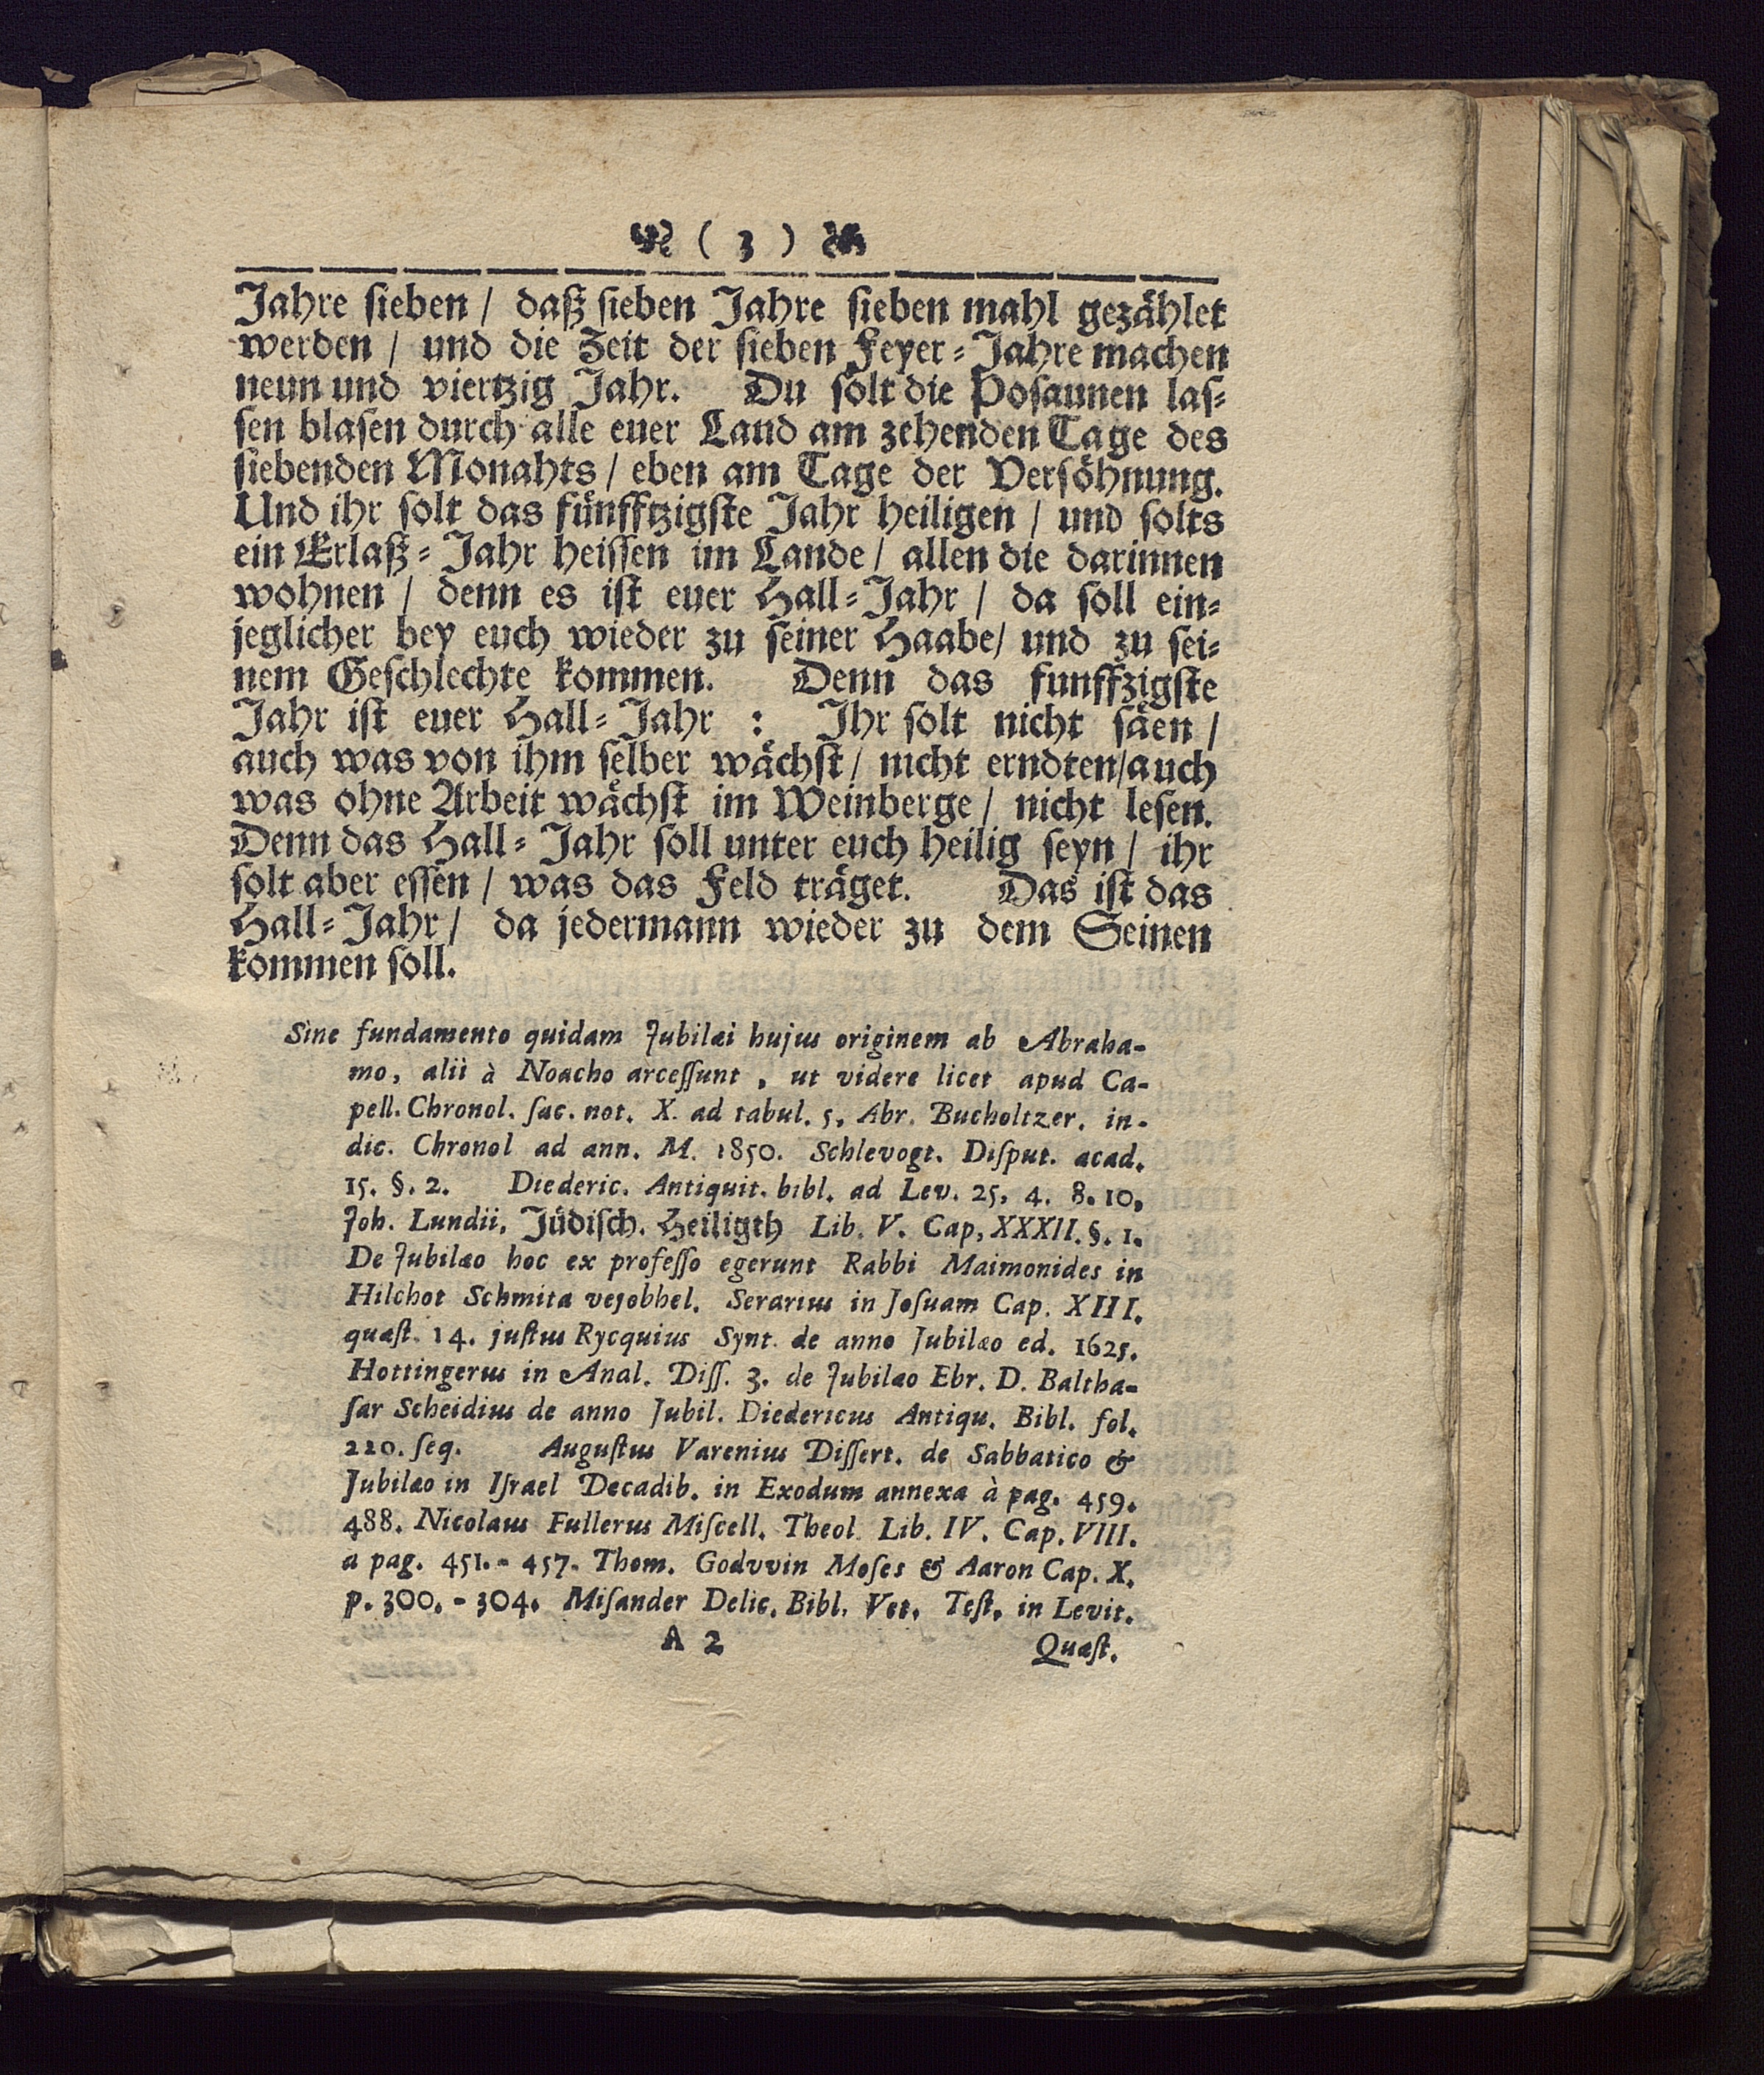 ( 3 )
Jahre sieben / daß sieben Jahre sieben mahl gezählet
werden / und die Zeit der sieben Feyer-Jahre machen
neun und viertzig Jahr. Du solt die Posaunen las-
sen blasen durch alle euer Land am zehenden Tage des
siebenden Monahts / eben am Tage der Versöhnung.
Und ihr solt das fünfftzigste Jahr heiligen / und solts
ein Erlaß-Jahr heissen im Lande / allen die darinnen
wohnen / denn es ist euer Hall-Jahr / da soll ein-
jeglicher bey euch wieder zu seiner Haabe/ und zu sei-
nem Geschlechte kommen. Denn das funffzigste
Jahr ist euer Hall-Jahr : Ihr solt nicht säen /
auch was von ihm selber wächst / nicht erndten/auch
was ohne Arbeit wächst im Weinberge / nicht lesen.
Denn das Hall-Jahr soll unter euch heilig seyn / ihr
solt aber essen / was das Feld träget. Das ist das
Hall-Jahr / da jedermann wieder zu dem Seinen
kommen soll.
Sine fundamento quidam Jubilæi hujus originem ab Abraha-
mo, alii à Noacho arcessunt, ut videre licet apud Ca-
pell. Chronol. sac. not. X. ad tabul. 5, Abr. Bucholtzer. in-
dic. Chronol ad ann. M. 1850. Schlevogt. Disput. acad.
15. §. 2. Diederic. Antiquit. bibl. ad Lev. 25, 4. 8. 10,
Joh. Lundii, Jüdisch. Heiligth Lib. V. Cap, XXXII. §. 1.
De Jubilæo hoc ex professo egerunt Rabbi Maimonides in
Hilchot Schmita vejobhel. Serarius in Josuam Cap. XIII.
quæst. 14. justus Rycquius Synt. de anno Jubilæo ed. 1625.
Hottingerus in Anal. Diss. 3. de Jubilæo Ebr. D. Baltha-
sar Scheidius de anno Jubil. Diedericus Antiqu. Bibl. fol.
220. seq. Augustus Varenius Dissert. de Sabbatico &
Jubilæo in Israel Decadib. in Exodum annexa à pag. 459.
488. Nicolaus Fullerus Miscell. Theol Lib. IV. Cap. VIII.
a pag. 451.-457. Thom. Godvvin Moses & Aaron Cap. X.
p. 300.-304. Misander Delic. Bibl. Vet. Test. in Levit.
A 2
Quæst.